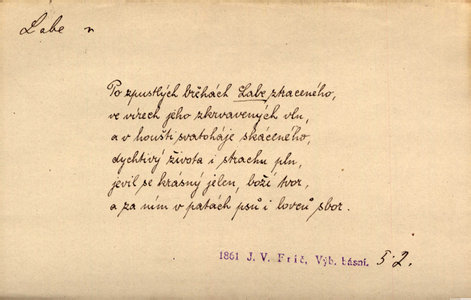 Labe n
Po zpustlých březích Labe ztraceného,
ve vírech jeho zkrvavených vln,
a v houšti svatoháje skáceného,
dychtivý života i strachu pln,
jevil se krásný jelen, boží tvor,
a za ním v patách psů i lovců sbor.
1861 J. V. Frič, Výb. básní. 52.